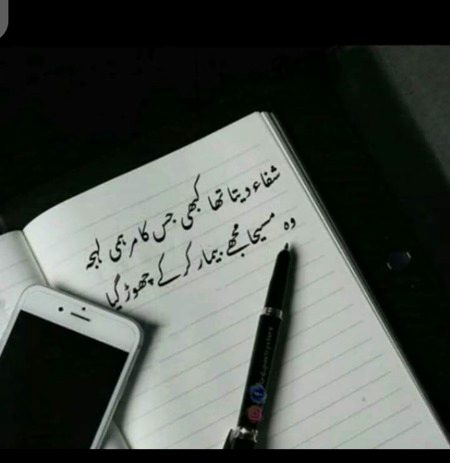 شفاء دیتا تھا کبھی جس کا مرہمی لہجہ
وہ مسیحا مجھے بیمار کرکے چھوڑ گیا